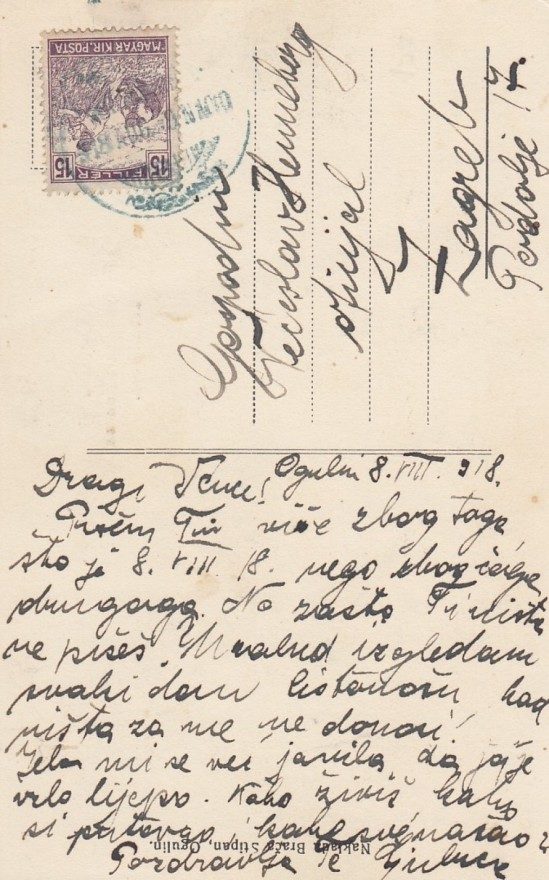 MAGYAR KIR. POSTA
15 FILLER 15
Gospodin
Većeslav Henneberg
Zagreb
Ogulin 8. VIII. 918.
Dragi
Pišem Ti više zbog toga
što je 8. VIII 18. nego zbog čega
drugoga. No zašto Ti ništa
ne pišeš. Uzalud izgledam
svaki dan listonošu kad
ništa za me ne donosi!
mi se već javila da joj je
vrlo lijepo. Kako živiš kako
si
Pozdravlja Te
Naklada Braća Stipan, Ogulin.